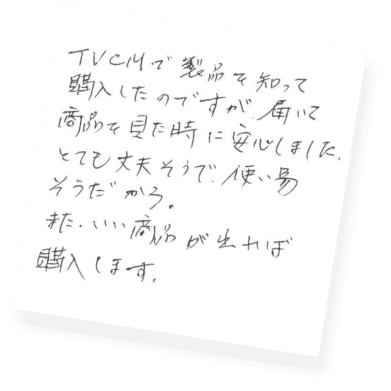 TVCMで製品を知って
購入したのですが、届いて
商品を見た時に安心しました。
とても丈夫そうで、使い易
そうだから。
また、いい商品が出れば
購入します。